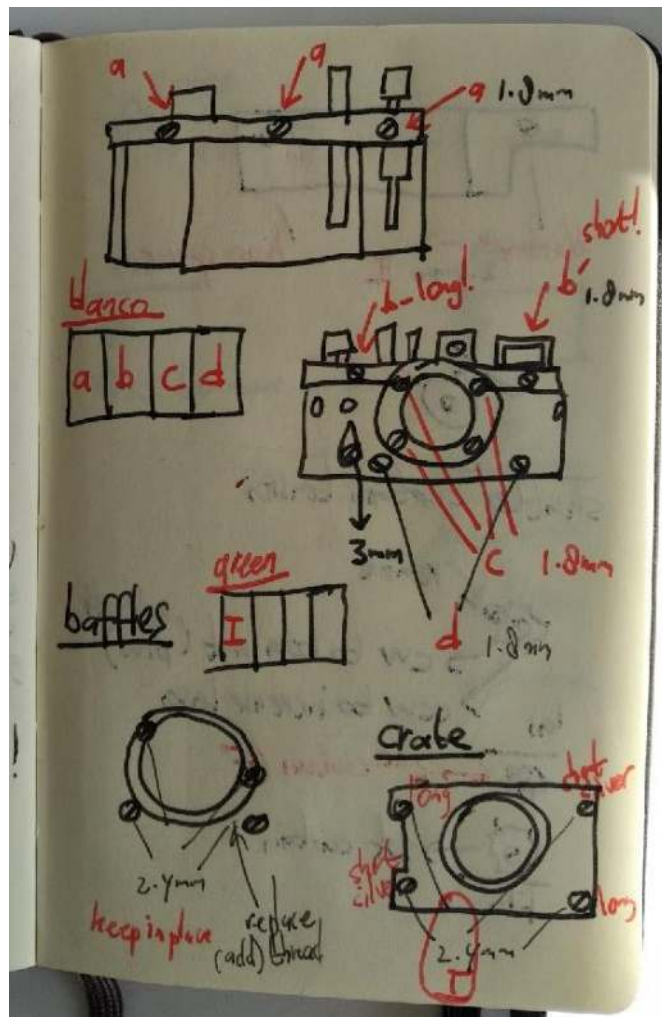 a
a
a 1.8mm
b-long!
b' short!
1.8mm
blanco
a b c d
3mm
c 1.8mm
d 1.8mm
green
I
baffles
crate
long
short
silver
short
silver
long
2.4mm
2.4mm
keep in place
replace
(add) thread